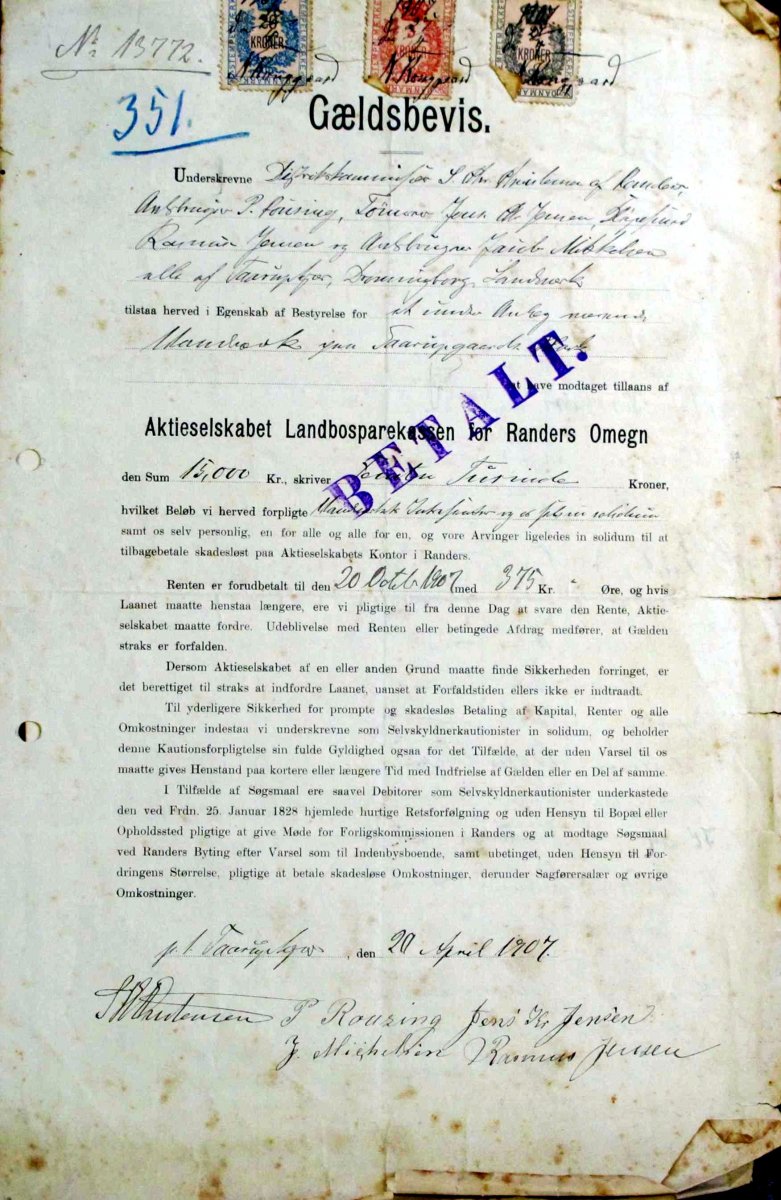 No 13772.
KRONER
KRONER
KRONER
N. Konggaard
N. Konggaard
351.
Gældsbevis.
Underskrevne S. Chr. af Randers,
P. Rousing, Tømrer Jens Kr Jensen,
Rasmus Jensen og Avlsbruger Jacob Mikkelsen
alle af Taarupgar, Dronningborg Landsogn
tilstaa herved i Egenskab af Bestyrelse for et under Anlæg værende
Vandværk paa Taarupgaards Mark
at have modtaget tillaans af
Aktieselskabet Landbosparekassen for Randers Omegn
BETALT.
den Sum 15,000 Kr., skriver Femten Tusinde Kroner,
hvilket Beløb vi herved forpligte Vandværkets Interessenter og os selv in solidum
samt os selv personlig, en for alle og alle for en, og vore Arvinger ligeledes in solidum til at
tilbagebetale skadesløst paa Aktieselskabets Kontor i Randers.
Renten er forudbetalt til den 20 Octob 1907 med 375 Kr. " Øre, og hvis
Laanet maatte henstaa længere, ere vi pligtige til fra denne Dag at svare den Rente, Aktie-
selskabet maatte fordre. Udeblivelse med Renten eller betingede Afdrag medfører, at Gælden
straks er forfalden.
Dersom Aktieselskabet af en eller anden Grund maatte finde Sikkerheden forringet, er
det berettiget til straks at indfordre Laanet, uanset at Forfaldstiden ellers ikke er indtraadt.
Til yderligere Sikkerhed for prompte og skadesløs Betaling af Kapital, Renter og alle
Omkostninger indestaa vi underskrevne som Selvskyldnerkautionister in solidum, og beholder
denne Kautionsforpligtelse sin fulde Gyldighed ogsaa for det Tilfælde, at der uden Varsel til os
maatte gives Henstand paa kortere eller længere Tid med Indfrielse af Gælden eller en Del af samme.
I Tilfælde af Søgsmaal ere saavel Debitorer som Selvskyldnerkautionister underkastede
den ved Frdn. 25. Januar 1828 hjemlede hurtige Retsforfølgning og uden Hensyn til Bopæl eller
Opholdssted pligtige at give Møde for Forligskommissionen i Randers og at modtage Søgsmaal
ved Randers Byting efter Varsel som til Indenbysboende, samt ubetinget, uden Hensyn til For-
dringens Størrelse, pligtige at betale skadesløse Omkostninger, derunder Sagførersalær og øvrige
Omkostninger.
p. t. Taarupgar, den 20 April 1907.
P Rousing Jens Kr Jensen
J. Mickelsen Rasmus Jensen